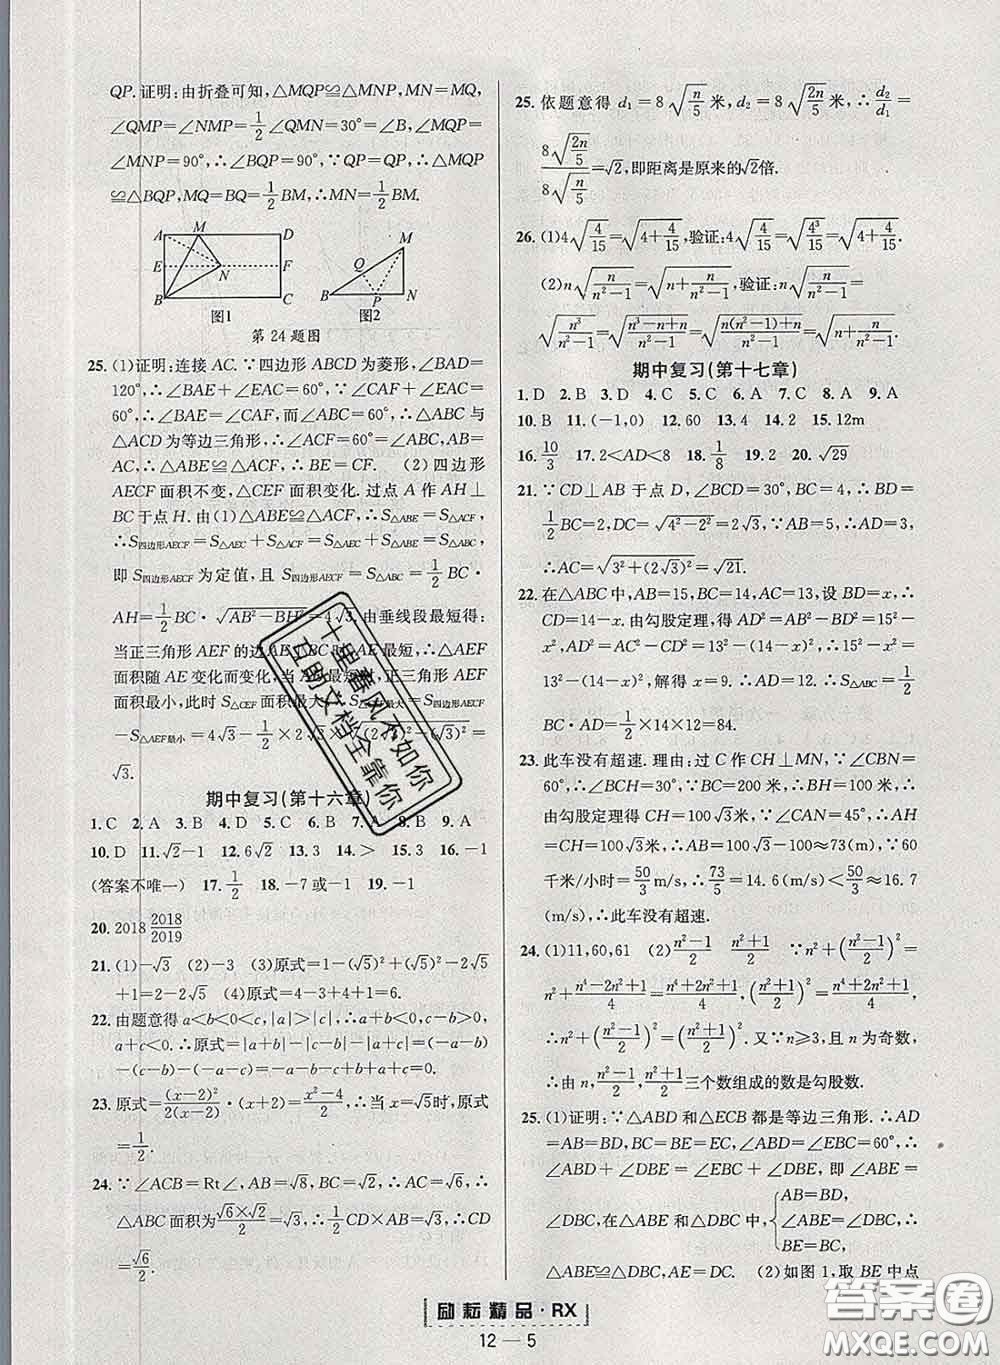 QP.证明:由折叠可知,△MQP≌△MNP,MN=MQ,
∠QMP=∠NMP=1/2∠QMN=30°=∠B,∠MQP=
∠MNP=90°,∴∠BQP=90°.∵QP=QP,∴△MQP
≌△BQP,MQ=BQ=1/2BM,∴MN=1/2BM.
A M D
E N F
B C
图1
M
Q
B P N
图2
第24题图
25. (1)证明:连接 AC.∵四边形 ABCD 为菱形,∠BAD=
120°,∴∠BAE+∠EAC=60°,∠CAF+∠EAC=
60°,∴∠BAE=∠CAF,而∠BAC=60°,∴△ABC 与
△ACD为等边三角形,∴∠ACF=60°=∠ABC,AC=
AB,∴△ABE≌△ACF,∴BE=CF. (2)四边形
AECF 面积不变,△CEF 面积变化.过点 A 作 AH⊥
BC于点 H.由(1)△ABE≌△ACF,∴S△ABE=S△ACF,
∴S四边形AECF=S△AEC+S△ACF=S△AEC+S△ABE=S△ABC,
即 S四边形AECF为定值,且 S四边形AECF=S△ABC=1/2 BC·
AH=1/2 BC·√(AB²-BH²)=4√3.由垂线段最短得:
当正三角形 AEF 的边 AE⊥BC 时,AE最短,△AEF
面积随 AE 变化而变化,当 AE最短时,正三角形 AEF
面积最小,此时 S△CEF面积最大=S四边形AECF
-S△AEF最小=4√3-1/2×2√3
√3.
期中复习(第十六章)
1.C 2.A 3.B 4.D 5.C 6.B 7.A 8.B 9.A
10.D 11.√2-1 12.6√2 13.3 14.> 15.3 16.-1
(答案不唯一) 17.1/2 18.-7或-1 19.-1
20. 2018 2018/2019
21. (1)-√3 (2)-3 (3)原式=1-(√5)²+(√5)²-2√5
+1=2-2√5 (4)原式=3-4+3+4=6.
22. 由题意得 a<b<0<c,|a|>|c|,∴a+b<0,c-b>0,
a+c<0.∴原式=|a+b|-|c-b|+|a+c|=(-a-b)
-(c-b)+(-a-c)=-2a-b-2c+b
23. 原式=(x-2)²/2(x-2)·(x+2)=(x²-4)/2,∴当 x=√5时,原式
=1/2.
24. ∵∠ACB=Rt∠,AB=√8,BC=√2,∴AC=√6,∴
△ABC 面积为(√6×√2)/2=√3,∴1/2CD×AB=√3,∴CD
=√6/2.
25. 依题意得 d₁=8√(n/5) 米,d₂=8√(2n/5) 米,∴d₂/d₁=
8√(2n/5)/8√(n/5)=√2,即距离是原来的√2倍.
26. (1)4√(4/15)=√(4+4/15),验证:4√(4/15)=√(4³/15)=√(4+4/15).
(2)n√(n/(n²-1))=√(n+n/(n²-1)),验证:n√(n/(n²-1))=
√(n³/(n²-1))=√((n³-n+n)/(n²-1))=√((n(n²-1)+n)/(n²-1))=√(n+n/(n²-1)).
期中复习(第十七章)
1.D 2.B 3.D 4.C 5.C 6.A 7.C 8.A 9.A
10.B 11.(-1,0) 12.60 13.4 14.2 15.12m
16.10/3 17.2<AD<8 18.1/8 19.2 20.√29
21. ∵CD⊥AB 于点 D,∠BCD=30°,BC=4,∴BD=
1/2BC=2,DC=√(4²-2²)=2√3,∵AB=5,∴AD=3,
∴AC=√(3²+(2√3)²)=√21.
22. 在△ABC 中,AB=15,BC=14,AC=13,设 BD=x,∴
CD=14-x.由勾股定理,得 AD²=AB²-BD²=15²-
x²,AD²=AC²-CD²=13²-(14-x)²,∴15²-x²=
13²-(14-x)²,解得 x=9.∴AD=12.∴S△ABC=1/2
BC·AD=1/2×14×12=84.
23. 此车没有超速.理由:过 C 作 CH⊥MN,∵∠CBN=
60°,∴∠BCH=30°,∵BC=200 米,∴BH=100 米,∴
由勾股定理得 CH=100√3米,∵∠CAN=45°,∴AH
=CH=100√3米,∴AB=100√3-100≈73(m),∵60
千米/小时=50/3m/s,∴73/5=14.6(m/s)<50/3≈16.7
(m/s),∴此车没有超速.
24. (1)11,60,61 (2)(n²-1)/2 (n²+1)/2 ∵n²+((n²-1)/2)²=
n²+(n⁴-2n²+1)/4=(n⁴+2n²+1)/4,((n²+1)/2)²=(n⁴+2n²+1)/4,
∴n²+((n²-1)/2)²=((n²+1)/2)².又∵n≥3,且 n 为奇数,
∴由 n,(n²-1)/2,(n²+1)/2三个数组成的数是勾股数.
25. (1)证明:∵△ABD 和△ECB 都是等边三角形,∴AD
=AB=BD,BC=BE=EC,∠ABD=∠EBC=60°,∴
∠ABD+∠DBE=∠EBC+∠DBE,即∠ABE=
∠DBC,在△ABE 和△DBC 中,{AB=BD,
∠ABE=∠DBC,
BE=BC,
△ABE≌△DBC,AE=DC. (2)如图 1,取 BE 中点
十里春风不如你
互助文档全靠你
励耘精品·RX
12—5
答案圈
MXQE.COM